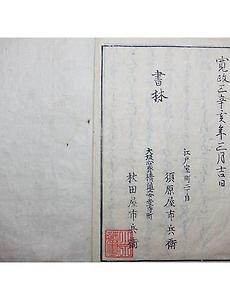 寛政三辛亥年三月吉日
書林
江戸室町二丁目
須原屋市兵衛
大坂心斎橋通安堂寺町
秋田屋市兵衛